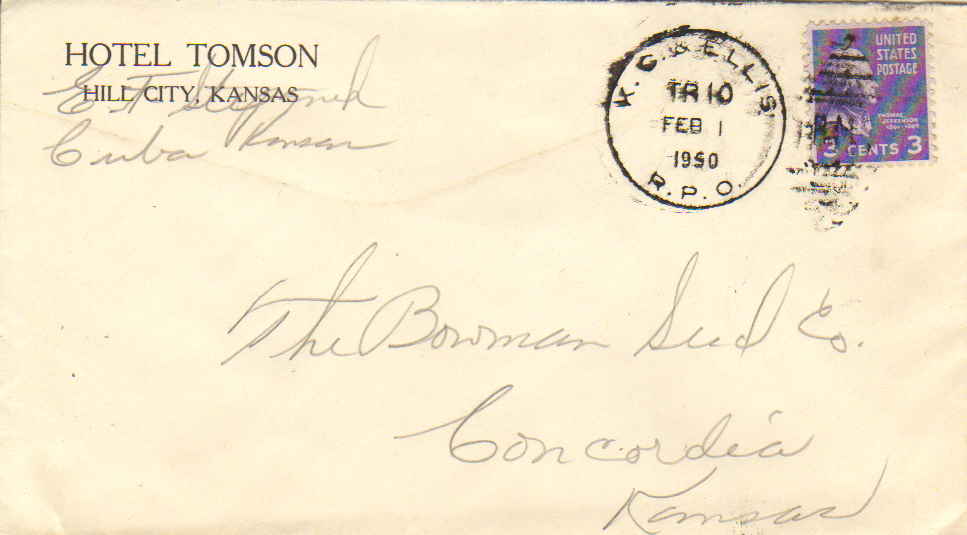 HOTEL TOMSON
HILL CITY, KANSAS
E F
Cuba Kansas
K. C. & ELLIS
TR 10
FEB 1
1950
R. P. O.
UNITED
STATES
POSTAGE
THOMAS
JEFFERSON
3 CENTS 3
The Bowman Seed Co.
Concordia
Kansas